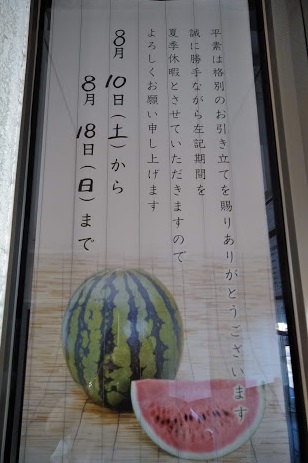 平素は格別のお引き立てを賜りありがとうございます
誠に勝手ながら左記期間を
夏季休暇とさせていただきますので
よろしくお願い申し上げます
8月10日(土)から
8月18日(日)まで